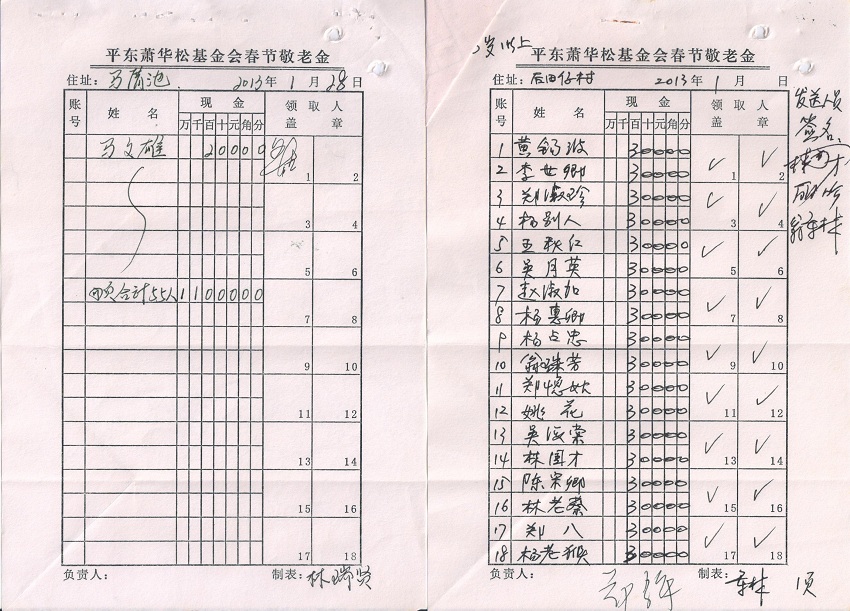 平东萧华松基金会春节敬老金
住址: 2013年1月28日
账号 姓名 现金 领取人盖章
万千百十元角分
马文雄 20000
1 2
3 4
5 6
合计55人 1100000
7 8
9 10
11 12
13 14
15 16
17 18
负责人: 制表: 林瑞贤
岁以上
平东萧华松基金会春节敬老金
住址: 后田仔村 2013年1月 日
账号 姓名 现金 领取人盖章
万千百十元角分
发送人员
签名
1 黄 30000 ✓1 ✓2
2 李女卿 30000
3 郑淑珍 30000 ✓3 ✓4
4 杨别人 30000
5 王秋红 30000 ✓5 ✓6
6 吴月英 30000
7 赵淑加 30000 ✓7 ✓8
8 杨惠卿 30000
9 杨占忠 30000 ✓9 ✓10
10 翁珠芳 30000
11 郑 30000 ✓11 ✓12
12 姚花 30000
13 吴 30000 ✓13 ✓14
14 林国才 30000
15 陈宋卿 30000 ✓15 ✓16
16 林老 30000
17 郑八 30000 ✓17 ✓18
18 杨老 30000
负责人: 制表: